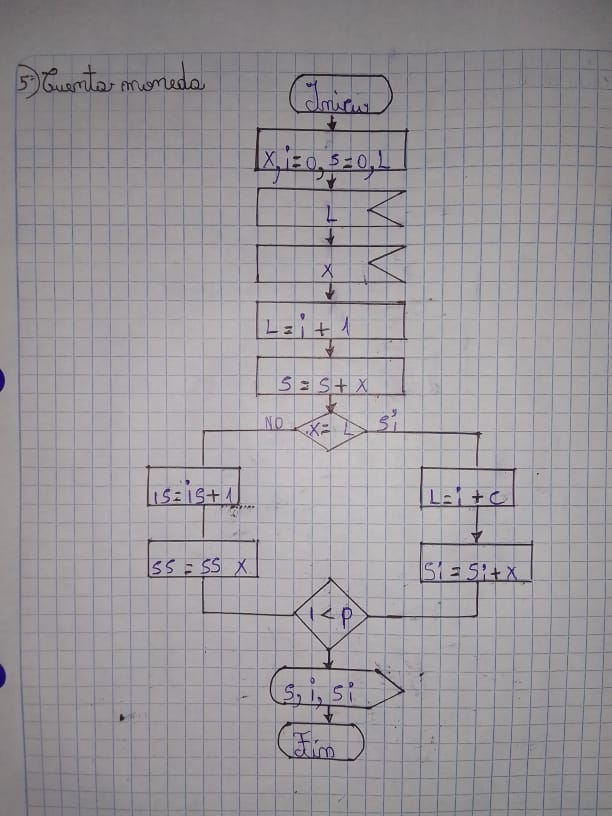 5) Cuenta moneda
Inicio
X, i=0, s=0, L
L
X
L = i + 1
S = S + X
NO X= L Si
is = is + 1
L = i + c
SS = SS X
Si = Si + X
i < p
S, i, Si
Fin